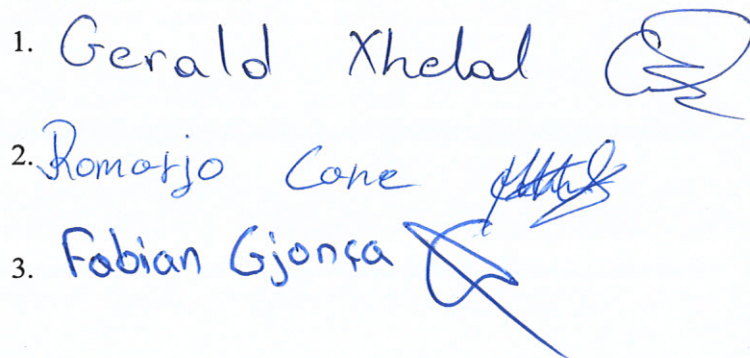 1. Gerald Xhelal
2. Romarjo Cane
3. Fabian Gjonça